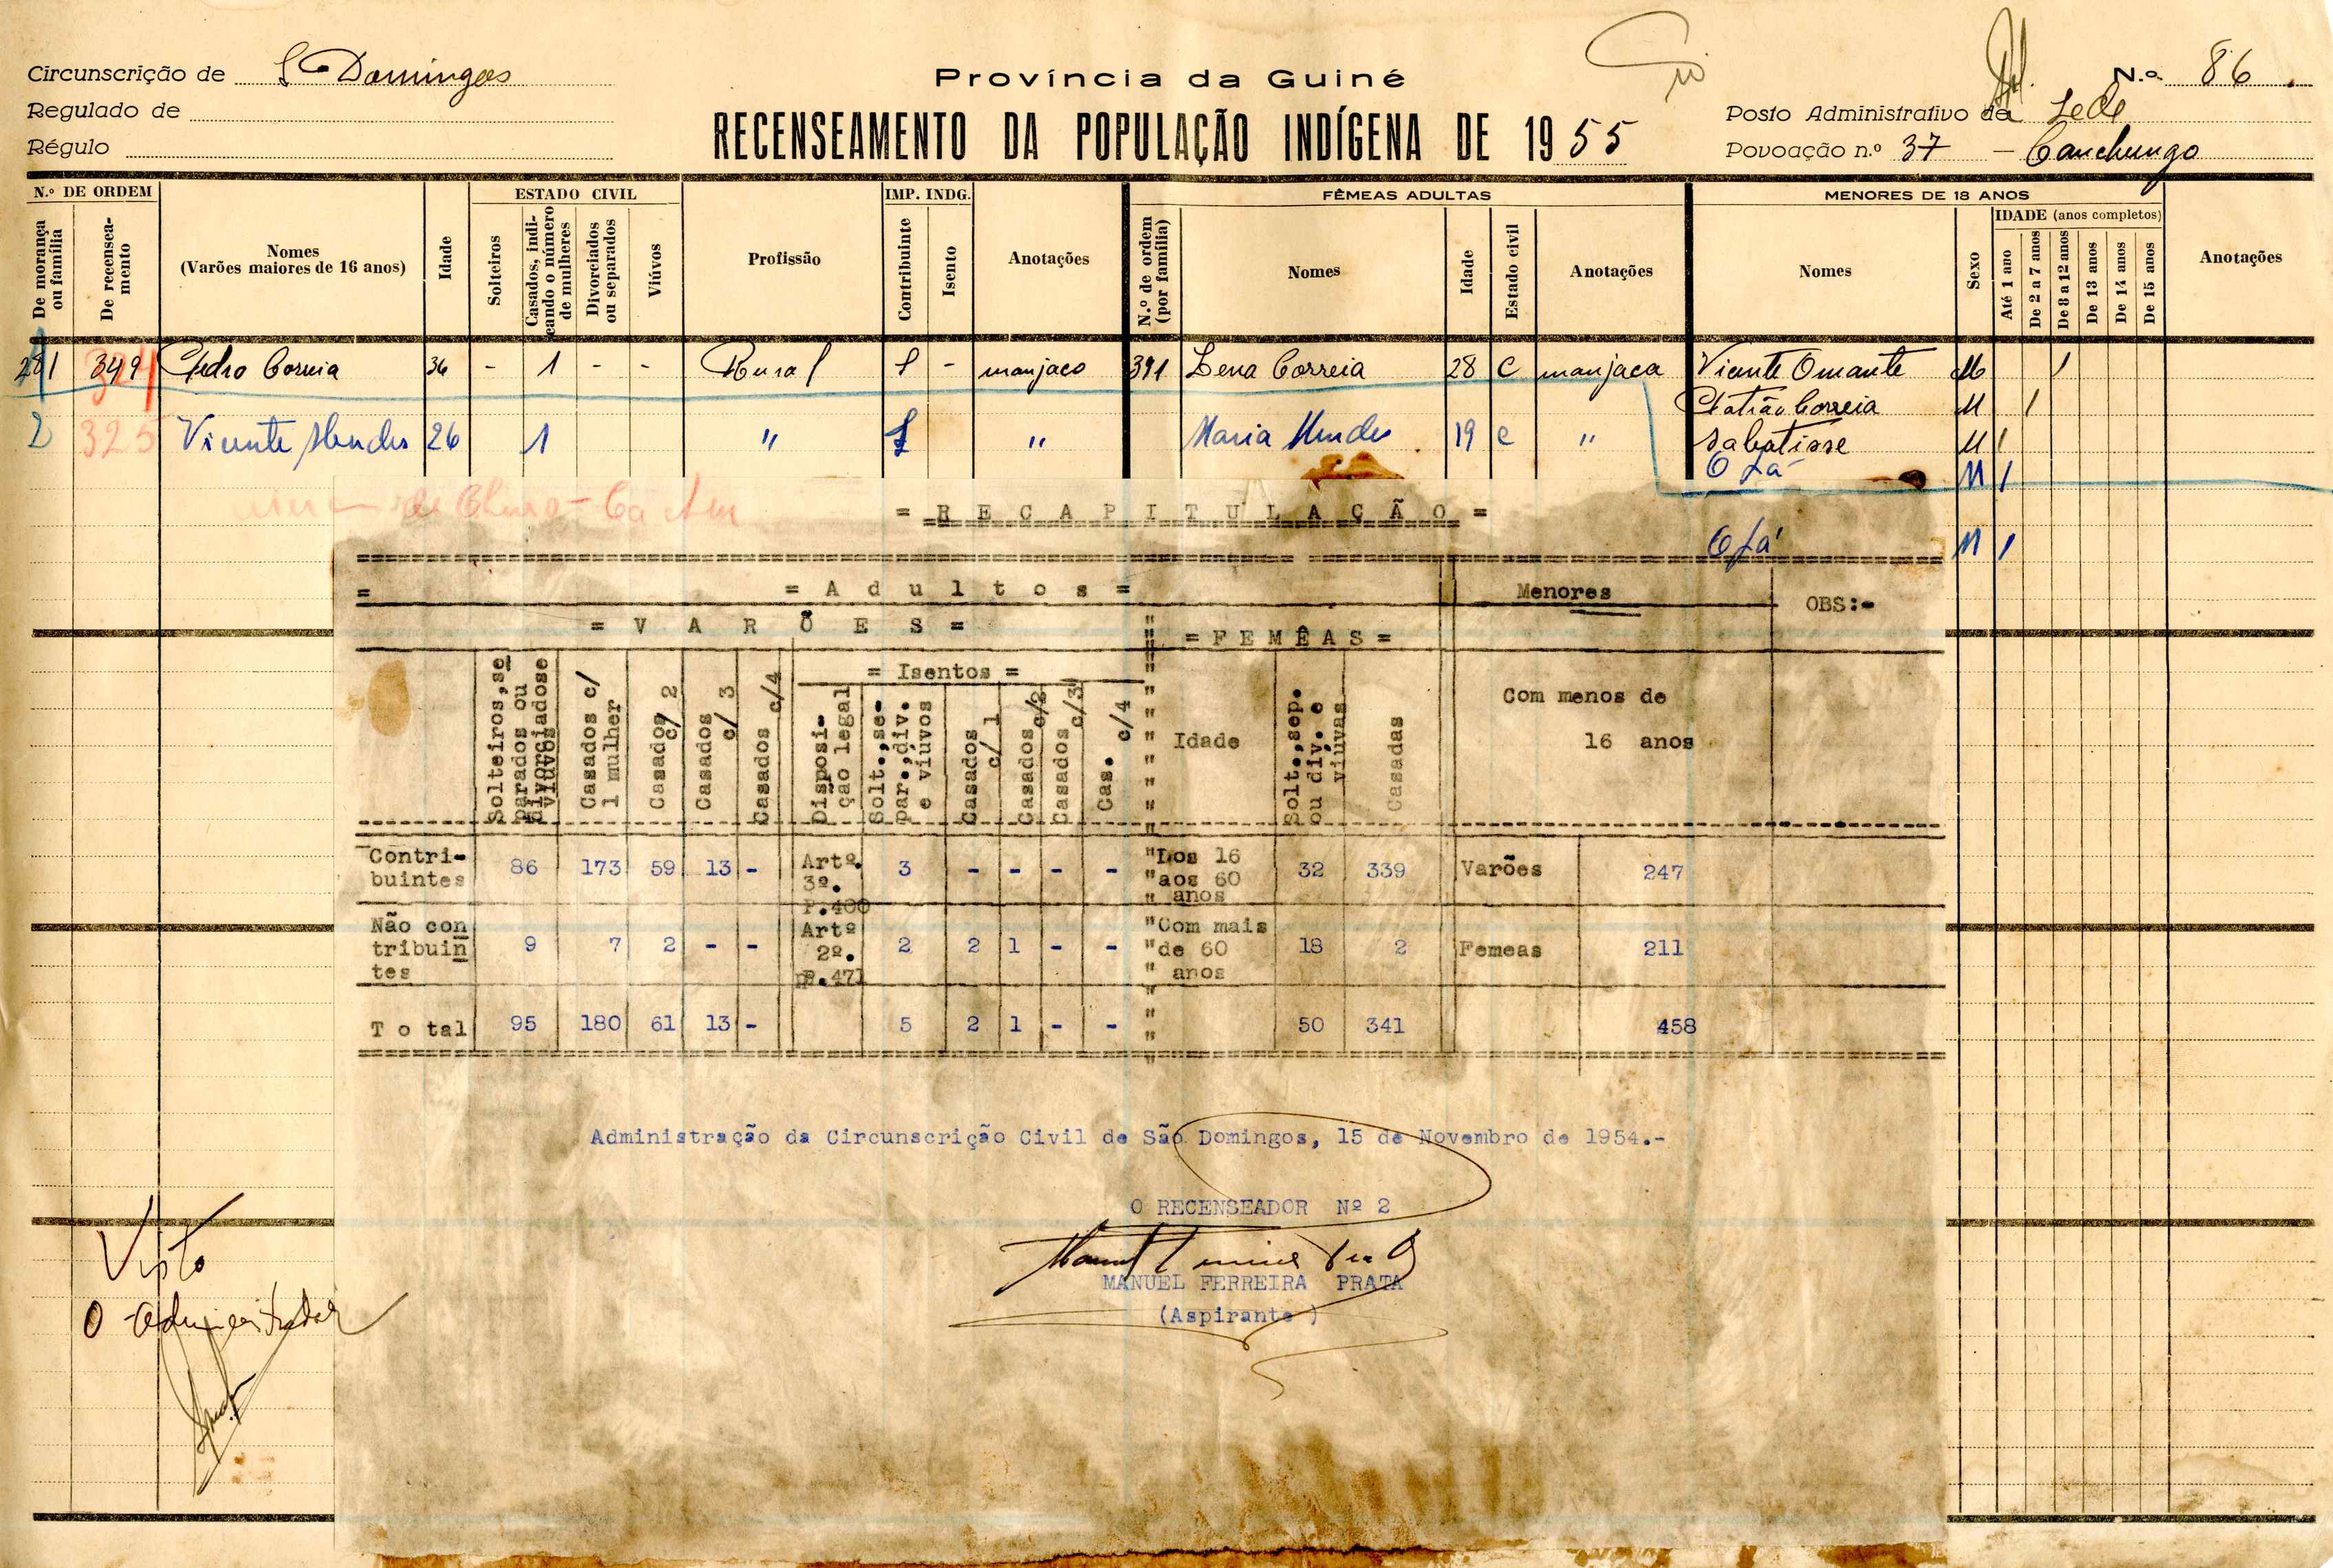 Circunscrição de S. Domingos
Regulado de
Régulo
Província da Guiné
RECENSEAMENTO DA POPULAÇÃO INDÍGENA DE 1955
N.º 86
Posto Administrativo da Sede
Povoação n.º 37 - Canchungo
N.º DE ORDEM
De morança ou família
De recenseamento
Nomes
(Varões maiores de 16 anos)
Idade
ESTADO CIVIL
Solteiros
Casados, indicando o número de mulheres
Divorciados ou separados
Viúvos
Profissão
IMP. INDG.
Contribuinte
Isento
Anotações
FÊMEAS ADULTAS
N.º de ordem (por família)
Nomes
Idade
Estado civil
Anotações
MENORES DE 18 ANOS
Nomes
Sexo
IDADE (anos completos)
Até 1 ano
De 2 a 7 anos
De 8 a 12 anos
De 13 anos
De 14 anos
De 15 anos
Anotações
349 Pedro Correia 36 - 1 - - Rural 1 - manjaco 391 Lena Correia 28 C manjaca Vicente Omante M 1
Correia M 1
2 325 Vicente Mendes 26 1 " 1 " Maria Mendes 19 c " Sabatisse M 1
O Lá M 1
O Lá M 1
= R E C A P I T U L A Ç Ã O =
= A d u l t o s =
Menores
OBS:-
= V A R Õ E S =
= F E M Ê A S =
Solteiros, separados ou divorciados e viúvos
Casados c/ 1 mulher
Casados c/ 2
Casados c/ 3
Casados c/4
= Isentos =
Disposição legal
Solt., separ., div. e viúvos
Casados c/ 1
Casados c/2
Casados c/3
Cas. c/4
Idade
Solt., sep. ou div. e viúvas
Casadas
Com menos de
16 anos
Contribuintes 86 173 59 13 - Artº. 3º. P.400 3 - - - - Dos 16 aos 60 anos 32 339 Varões 247
Não contribuintes 9 7 2 - - Artº 2º. P.471 2 2 1 - - Com mais de 60 anos 18 2 Femeas 211
T o tal 95 180 61 13 - 5 2 1 - - 50 341 458
Administração da Circunscrição Civil de São Domingos, 15 de Novembro de 1954.-
O RECENSEADOR Nº 2
MANUEL FERREIRA PRATA
(Aspirante)
Visto
O Administrador